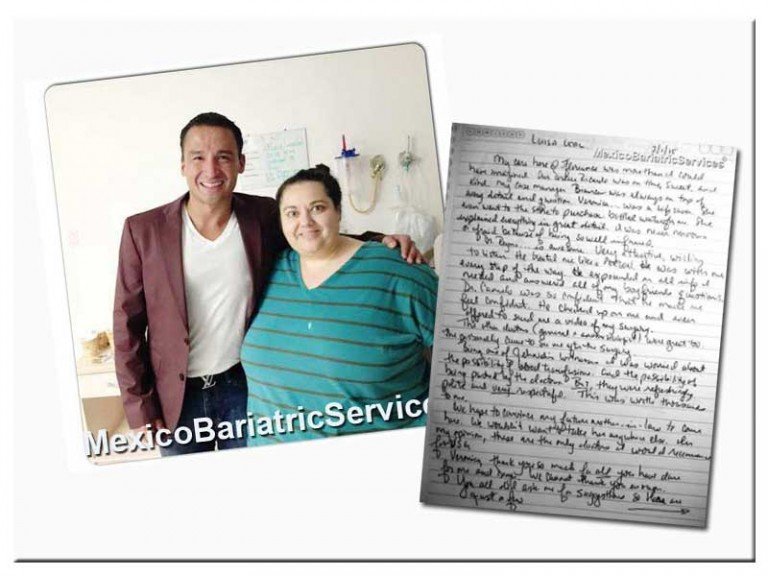 MexicoBariatricService
Luisa
MexicoBariatricServices
My care here @ Florence was more than I could
have imagined. Our driver Ricardo was on time, sweet and
kind. My case manager was always on top of
every detail and question. Veronica was a life saver. She
even went to the store to purchase bottled water for me. She
explained everything in great detail. I was never nervous
or afraid because of being so well informed.
Dr. is awesome. Very attentive, willing
to listen. He treated me like a person. He was with me
every step of the way. He expounded on all info I
needed and answered all of my boyfriends questions.
Dr. Camelo was so confident that he made me
feel confident. He checked up on me and even
offered to send me a video of my surgery.
The other doctors (general + ) were great too.
personally came to see me after the surgery.
Being one of Jehovah's Witnesses, I was worried about
the possibility of blood transfusions and the possibility of
being by the doctors. But, they were refreshingly
polite and very respectful. This was worth thousands
to me.
We hope to convince my future mother-in-law to come
here. We wouldn't want to take her anywhere else. In
my opinion, these are the only doctors I would recommend
for VSG.
Veronica, thank you so much for all you have done
for me and We cannot thank you enough.
You all did ask me for suggestions so Here are
just a few